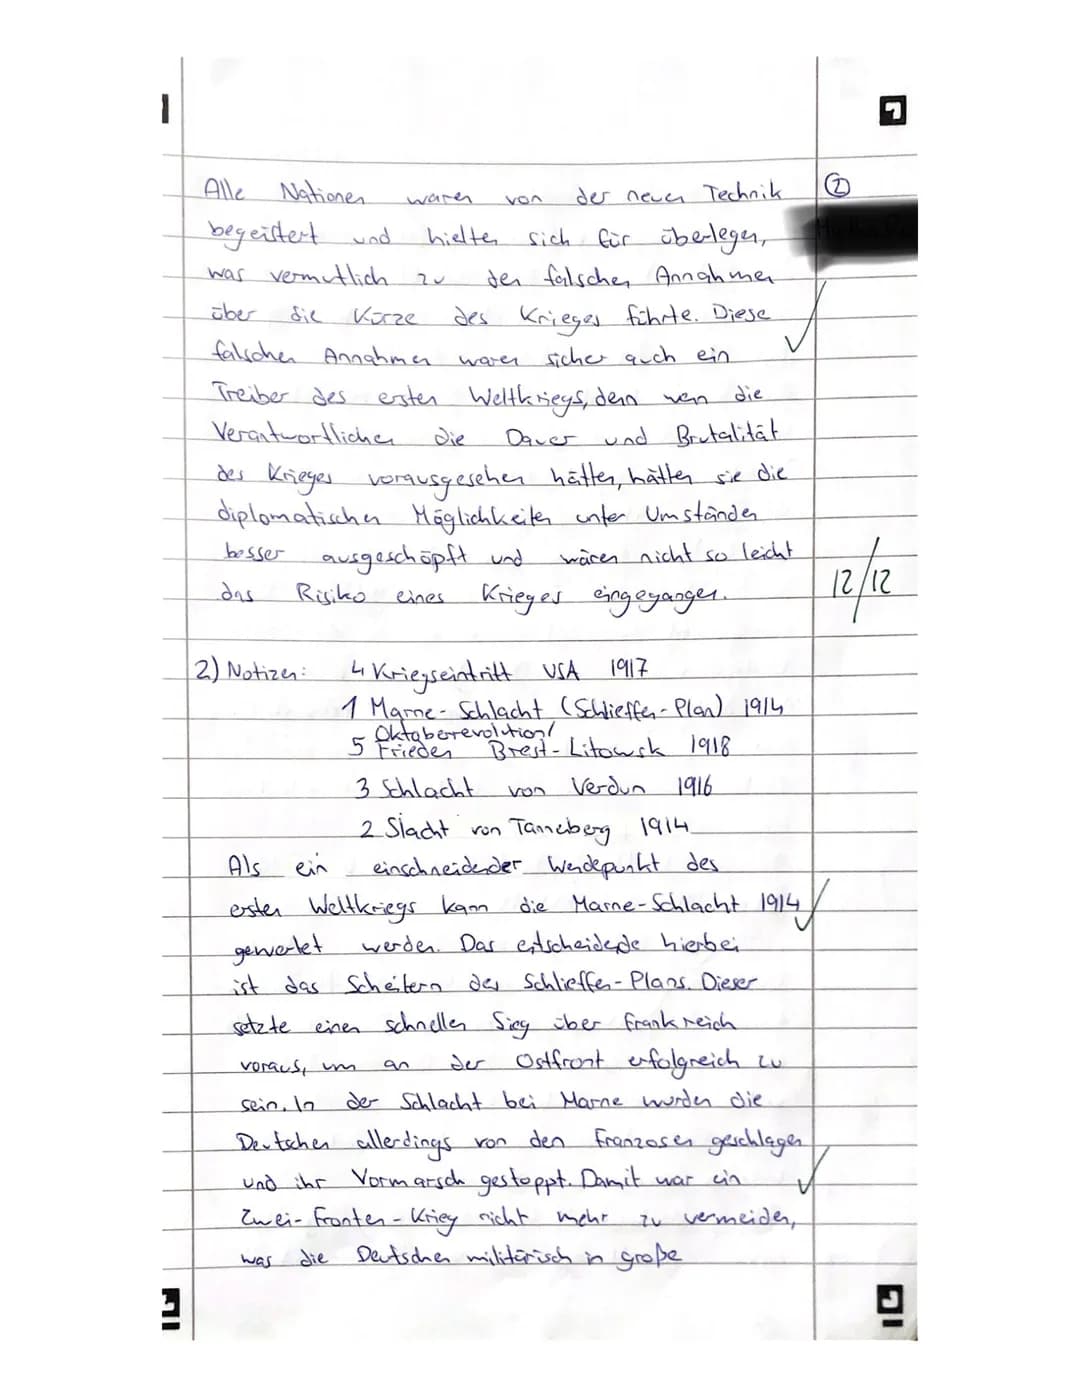 Alle Nationen waren von der neuen Technik
②
begeistert und hielten sich für überlegen,
was vermutlich zu den falschen Annahmen
über die Kürze des Krieges führte. Diese
falschen Annahmen waren sicher auch ein
Treiber des ersten Weltkriegs, denn wenn die
Verantwortlichen die Dauer und Brutalität
des Krieges vorausgesehen hätten, hätten sie die
diplomatischen Möglichkeiten unter Umständen
besser ausgeschöpft und wären nicht so leicht
das Risiko eines Krieges eingegangen.
12/12
2) Notizen: 4 Kriegseintritt USA 1917
1 Marne-Schlacht (Schlieffen-Plan) 1914
Oktoberevolution/
5 Frieden Brest-Litowsk 1918
3 Schlacht von Verdun 1916
2 Slacht von Tanneberg 1914
Als ein einschneidender Wendepunkt des
ersten Weltkriegs kann die Marne-Schlacht 1914
gewertet werden. Das entscheidede hierbei
ist das Scheitern des Schlieffen-Plans. Dieser
setzte einen schnellen Sieg über Frankreich
voraus, um an der Ostfront erfolgreich zu
sein. In der Schlacht bei Marne wurden die
Deutschen allerdings von den Franzosen geschlagen
und ihr Vormarsch gestoppt. Damit war ein
Zwei-Fronten-Krieg nicht mehr zu vermeiden,
was die Deutschen militärisch in große